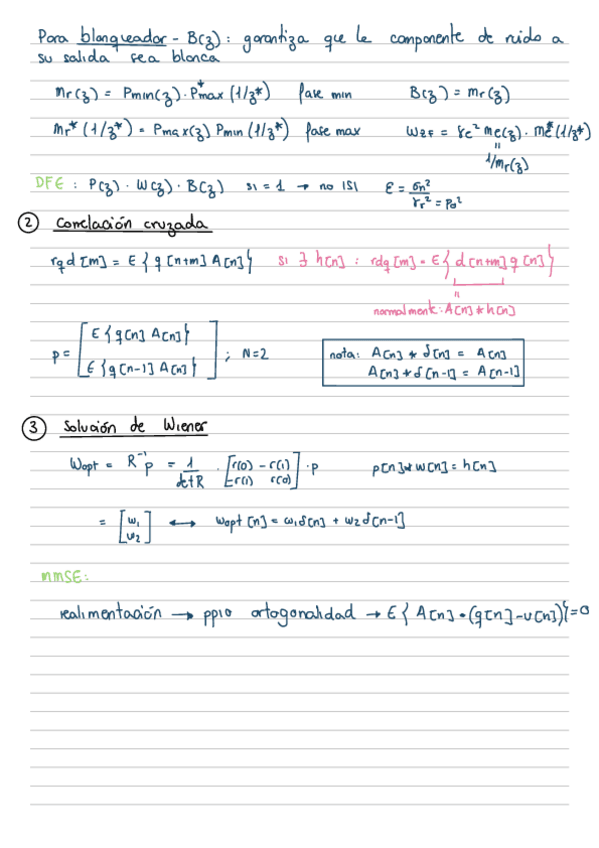 Para blanqueador - B(z): garantiza que la componente de ruido a
su salida sea blanca
Mr(z) = Pmin(z) · P*max (1/z*) fase min B(z) = mr(z)
Mr* (1/z*) = Pmax(z) Pmin (1/z*) fase max WZF = γe² me(z) · me*(1/z*)
"
1/mr(z)
DFE: P(z) · W(z) · B(z) si = 1 → no ISI ε = σn² / γr² = po²
② Correlación cruzada
rqd [m] = E{ q [n+m] A[n]} si ∃ h[n] : rdq[m] = E{ d[n+m] q[n]}
"
normalment: A[n] * h[n]
p = [ E{q[n] A[n]} E{q[n-1] A[n]} ] ; N=2
nota: A[n] * δ[n] = A[n]
A[n] * δ[n-1] = A[n-1]
③ Solución de Wiener
Wopt = R⁻¹ p = 1/detR · [ r(0) -r(1) -r(1) r(0) ] · p p[n] * w[n] = h[n]
= [ w1 w2 ] ↔ wopt [n] = w1δ[n] + w2δ[n-1]
MMSE:
realimentación → ppio ortogonalidad → E{ A[n] · (q[n] - u[n])} = 0